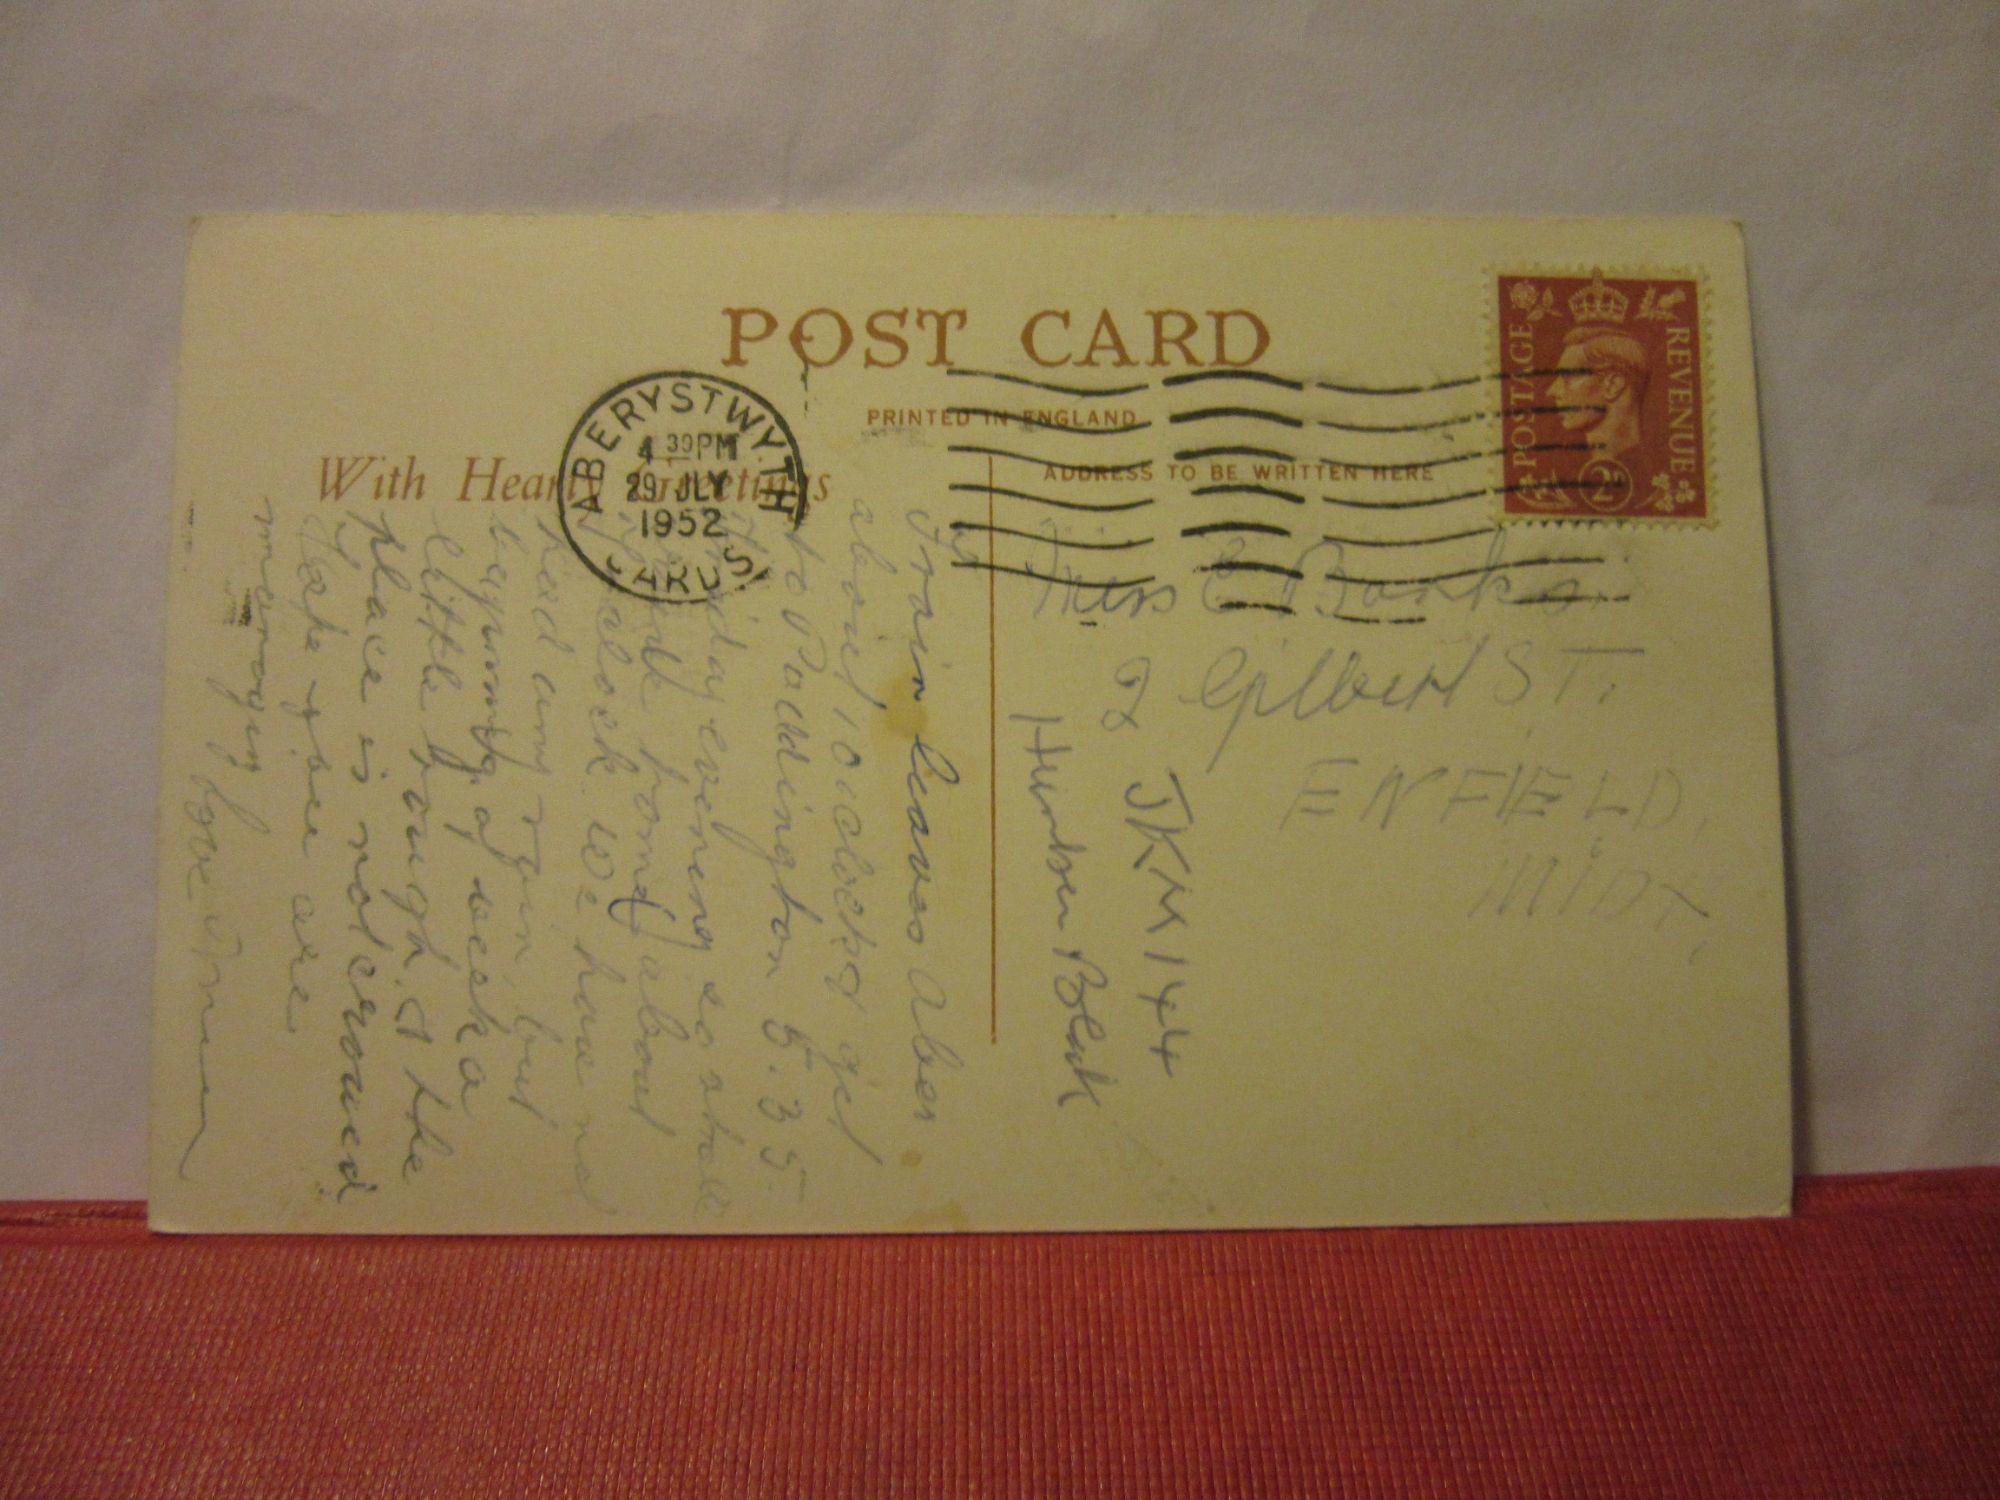 POST CARD
PRINTED IN ENGLAND
With Hearty Greetings
ADDRESS TO BE WRITTEN HERE
POSTAGE
REVENUE
ABERYSTWYTH
4 30 PM
29 JLY
1952
CARDS
Miss E Banks
Gilbert ST.
ENFIELD,
MIDX.
JKM 144
Humber
Train leaves Aber
about 10 oclock & get
to Paddington 5.35
Friday evening so shall
be home about
oclock we have not
had any rain, but
beginning of week a
little rough. & the
place is not crowed
Hope you are
Love